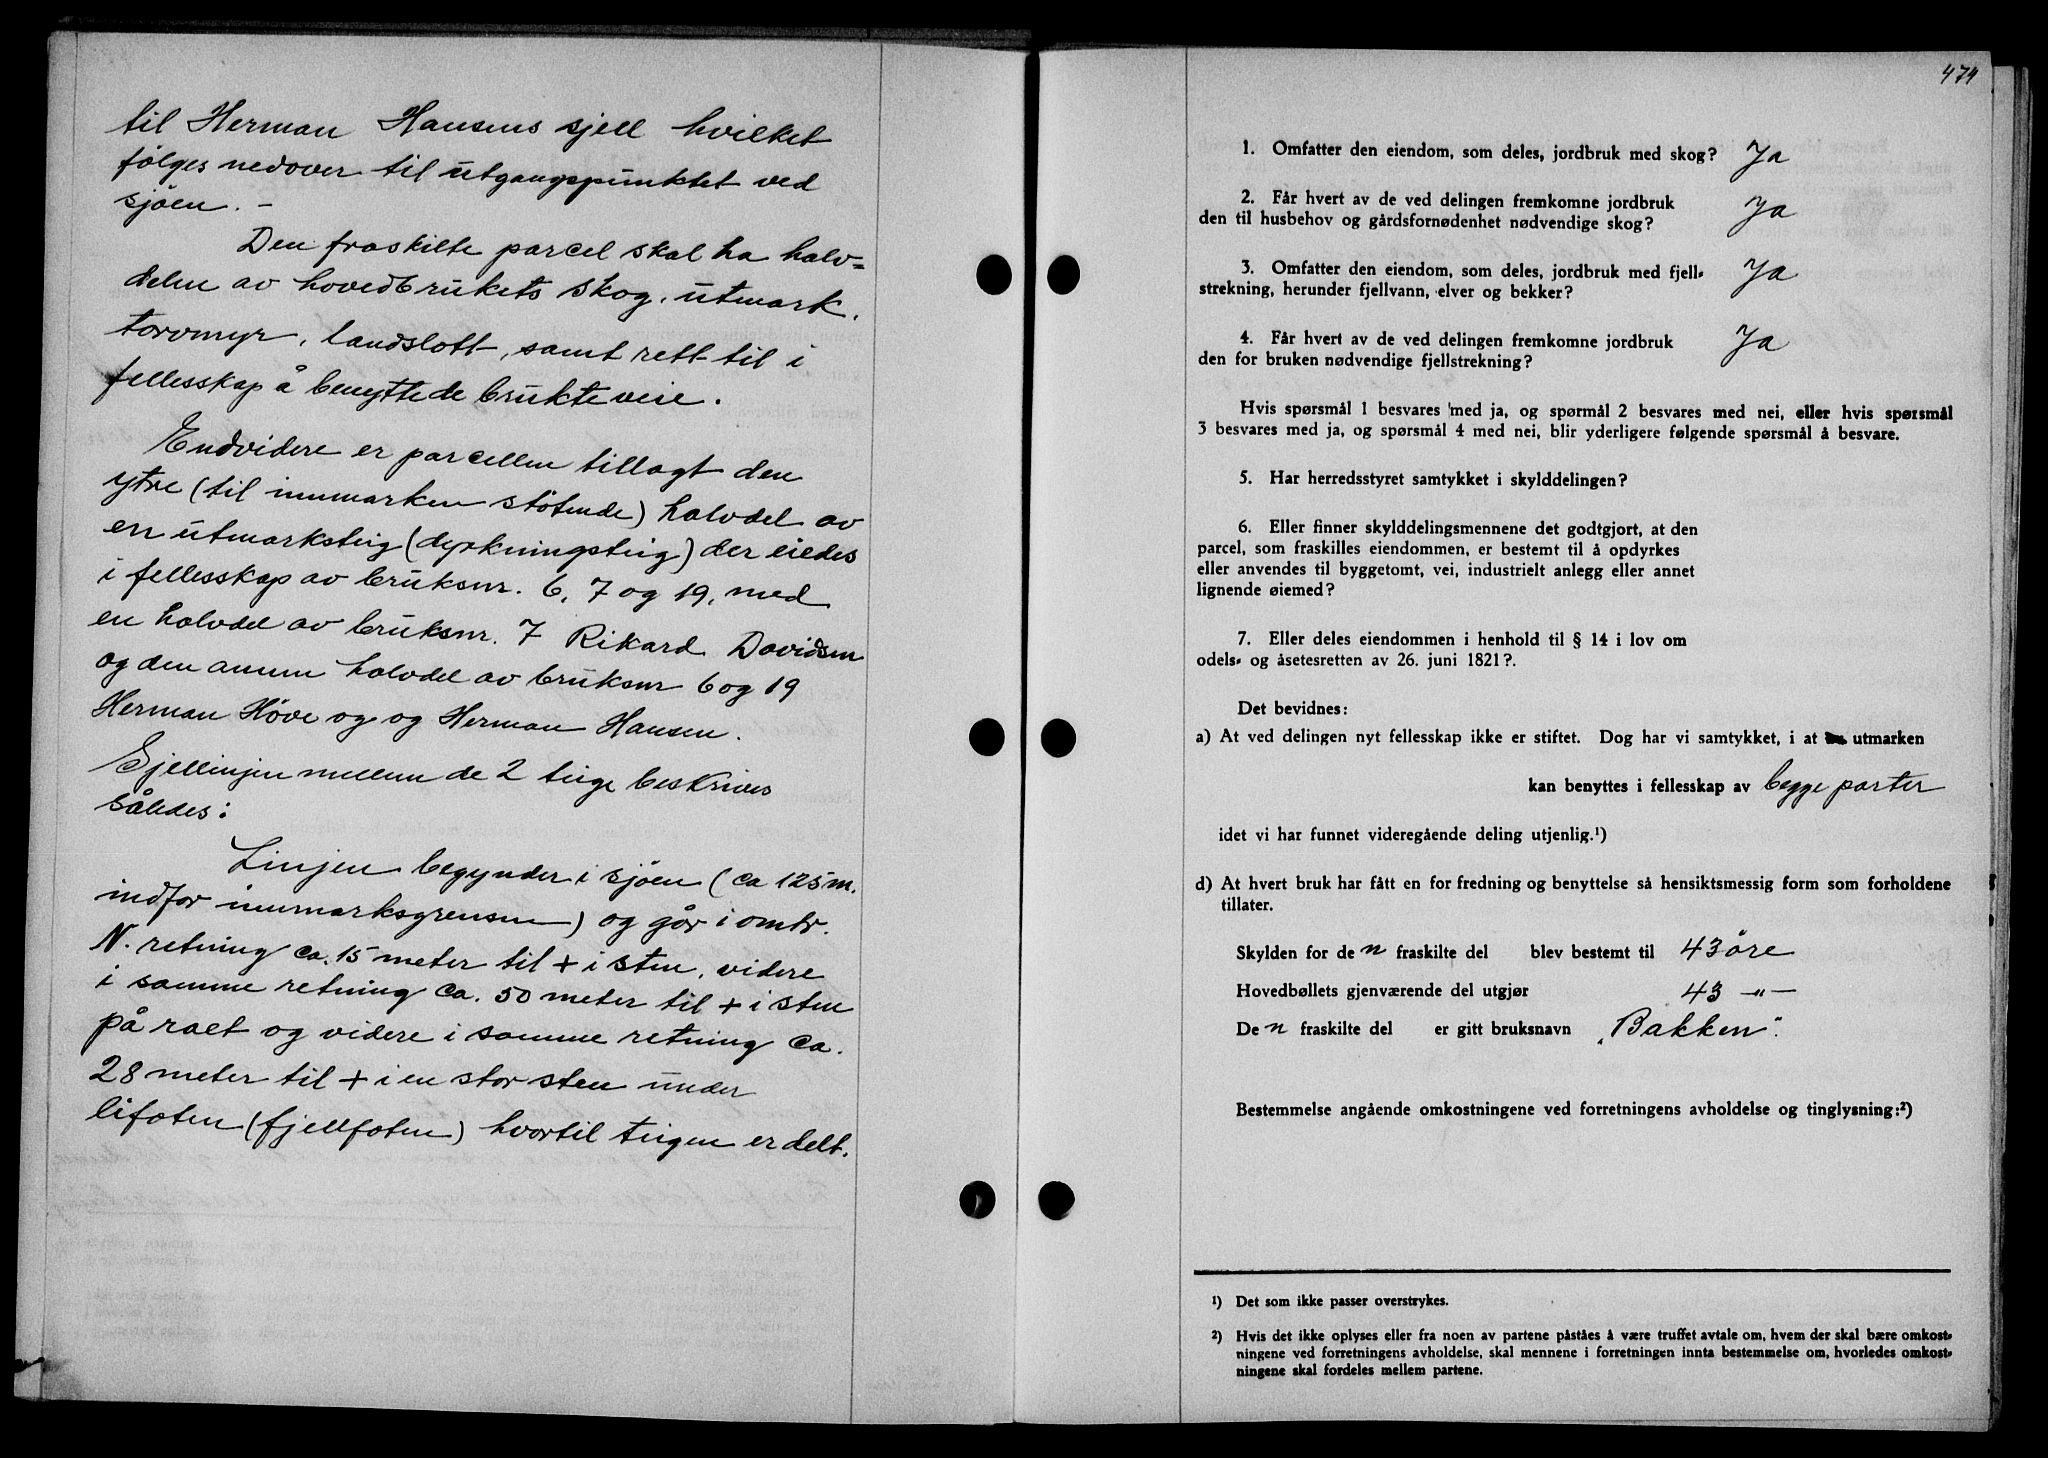 til Herman Hansens sjell hvilket
følges nedover til utgangspunktet ved
sjøen. -
Den fraskilte parcel skal ha halv=
delen av hovedbrukets skog, utmark,
torvmyr, landslott, samt rett til i
fellesskap å benytte de brukte veie.
Endvidere er parcellen tillagt den
ytre (til innmarken støtende) halvdel av
en utmarksteig (dyrkningsteig) der eiedes
i fellesskap av bruksnr. 6, 7 og 19, med
en halvdel av bruksnr. 7 Rikard Davidsen
og den annen halvdel av bruksnr 6 og 19
Herman Höve og og Herman Hansen.
Sjellinjen mellem de 2 teige beskrives
således:
Linjen begynder i sjøen (ca 125 m.
indfor innmarksgrensen) og går i omtr.
N. retning ca. 15 meter til + i sten, videre
i samme retning ca. 50 meter til + i sten
på raet og videre i samme retning ca.
28 meter til + i en stor sten under
lifoten (fjellfoten) hvortil teigen er delt.
474
1. Omfatter den eiendom, som deles, jordbruk med skog? Ja
2. Får hvert av de ved delingen fremkomne jordbruk
den til husbehov og gårdsfornødenhet nødvendige skog? Ja
3. Omfatter den eiendom, som deles, jordbruk med fjell-
strekning, herunder fjellvann, elver og bekker? Ja
4. Får hvert av de ved delingen fremkomne jordbruk
den for bruken nødvendige fjellstrekning? Ja
Hvis spørsmål 1 besvares med ja, og spørmål 2 besvares med nei, eller hvis spørsmål
3 besvares med ja, og spørsmål 4 med nei, blir yderligere følgende spørsmål å besvare.
5. Har herredsstyret samtykket i skylddelingen?
6. Eller finner skylddelingsmennene det godtgjort, at den
parcel, som fraskilles eiendommen, er bestemt til å opdyrkes
eller anvendes til byggetomt, vei, industrielt anlegg eller annet
lignende øiemed?
7. Eller deles eiendommen i henhold til § 14 i lov om
odels- og åsetesretten av 26. juni 1821?.
Det bevidnes:
a) At ved delingen nyt fellesskap ikke er stiftet. Dog har vi samtykket, i at utmarken
kan benyttes i fellesskap av begge parter
idet vi har funnet videregående deling utjenlig.¹)
d) At hvert bruk har fått en for fredning og benyttelse så hensiktsmessig form som forholdene
tillater.
Skylden for de n fraskilte del blev bestemt til 43 öre
Hovedbøllets gjenværende del utgjør 43 -"-
De n fraskilte del er gitt bruksnavn „Bakken".
Bestemmelse angående omkostningene ved forretningens avholdelse og tinglysning:²)
¹) Det som ikke passer overstrykes.
²) Hvis det ikke oplyses eller fra noen av partene påståes å være truffet avtale om, hvem der skal bære omkost-
ningene ved forretningens avholdelse, skal mennene i forretningen innta bestemmelse om, hvorledes omkost-
ningene skal fordeles mellem partene.